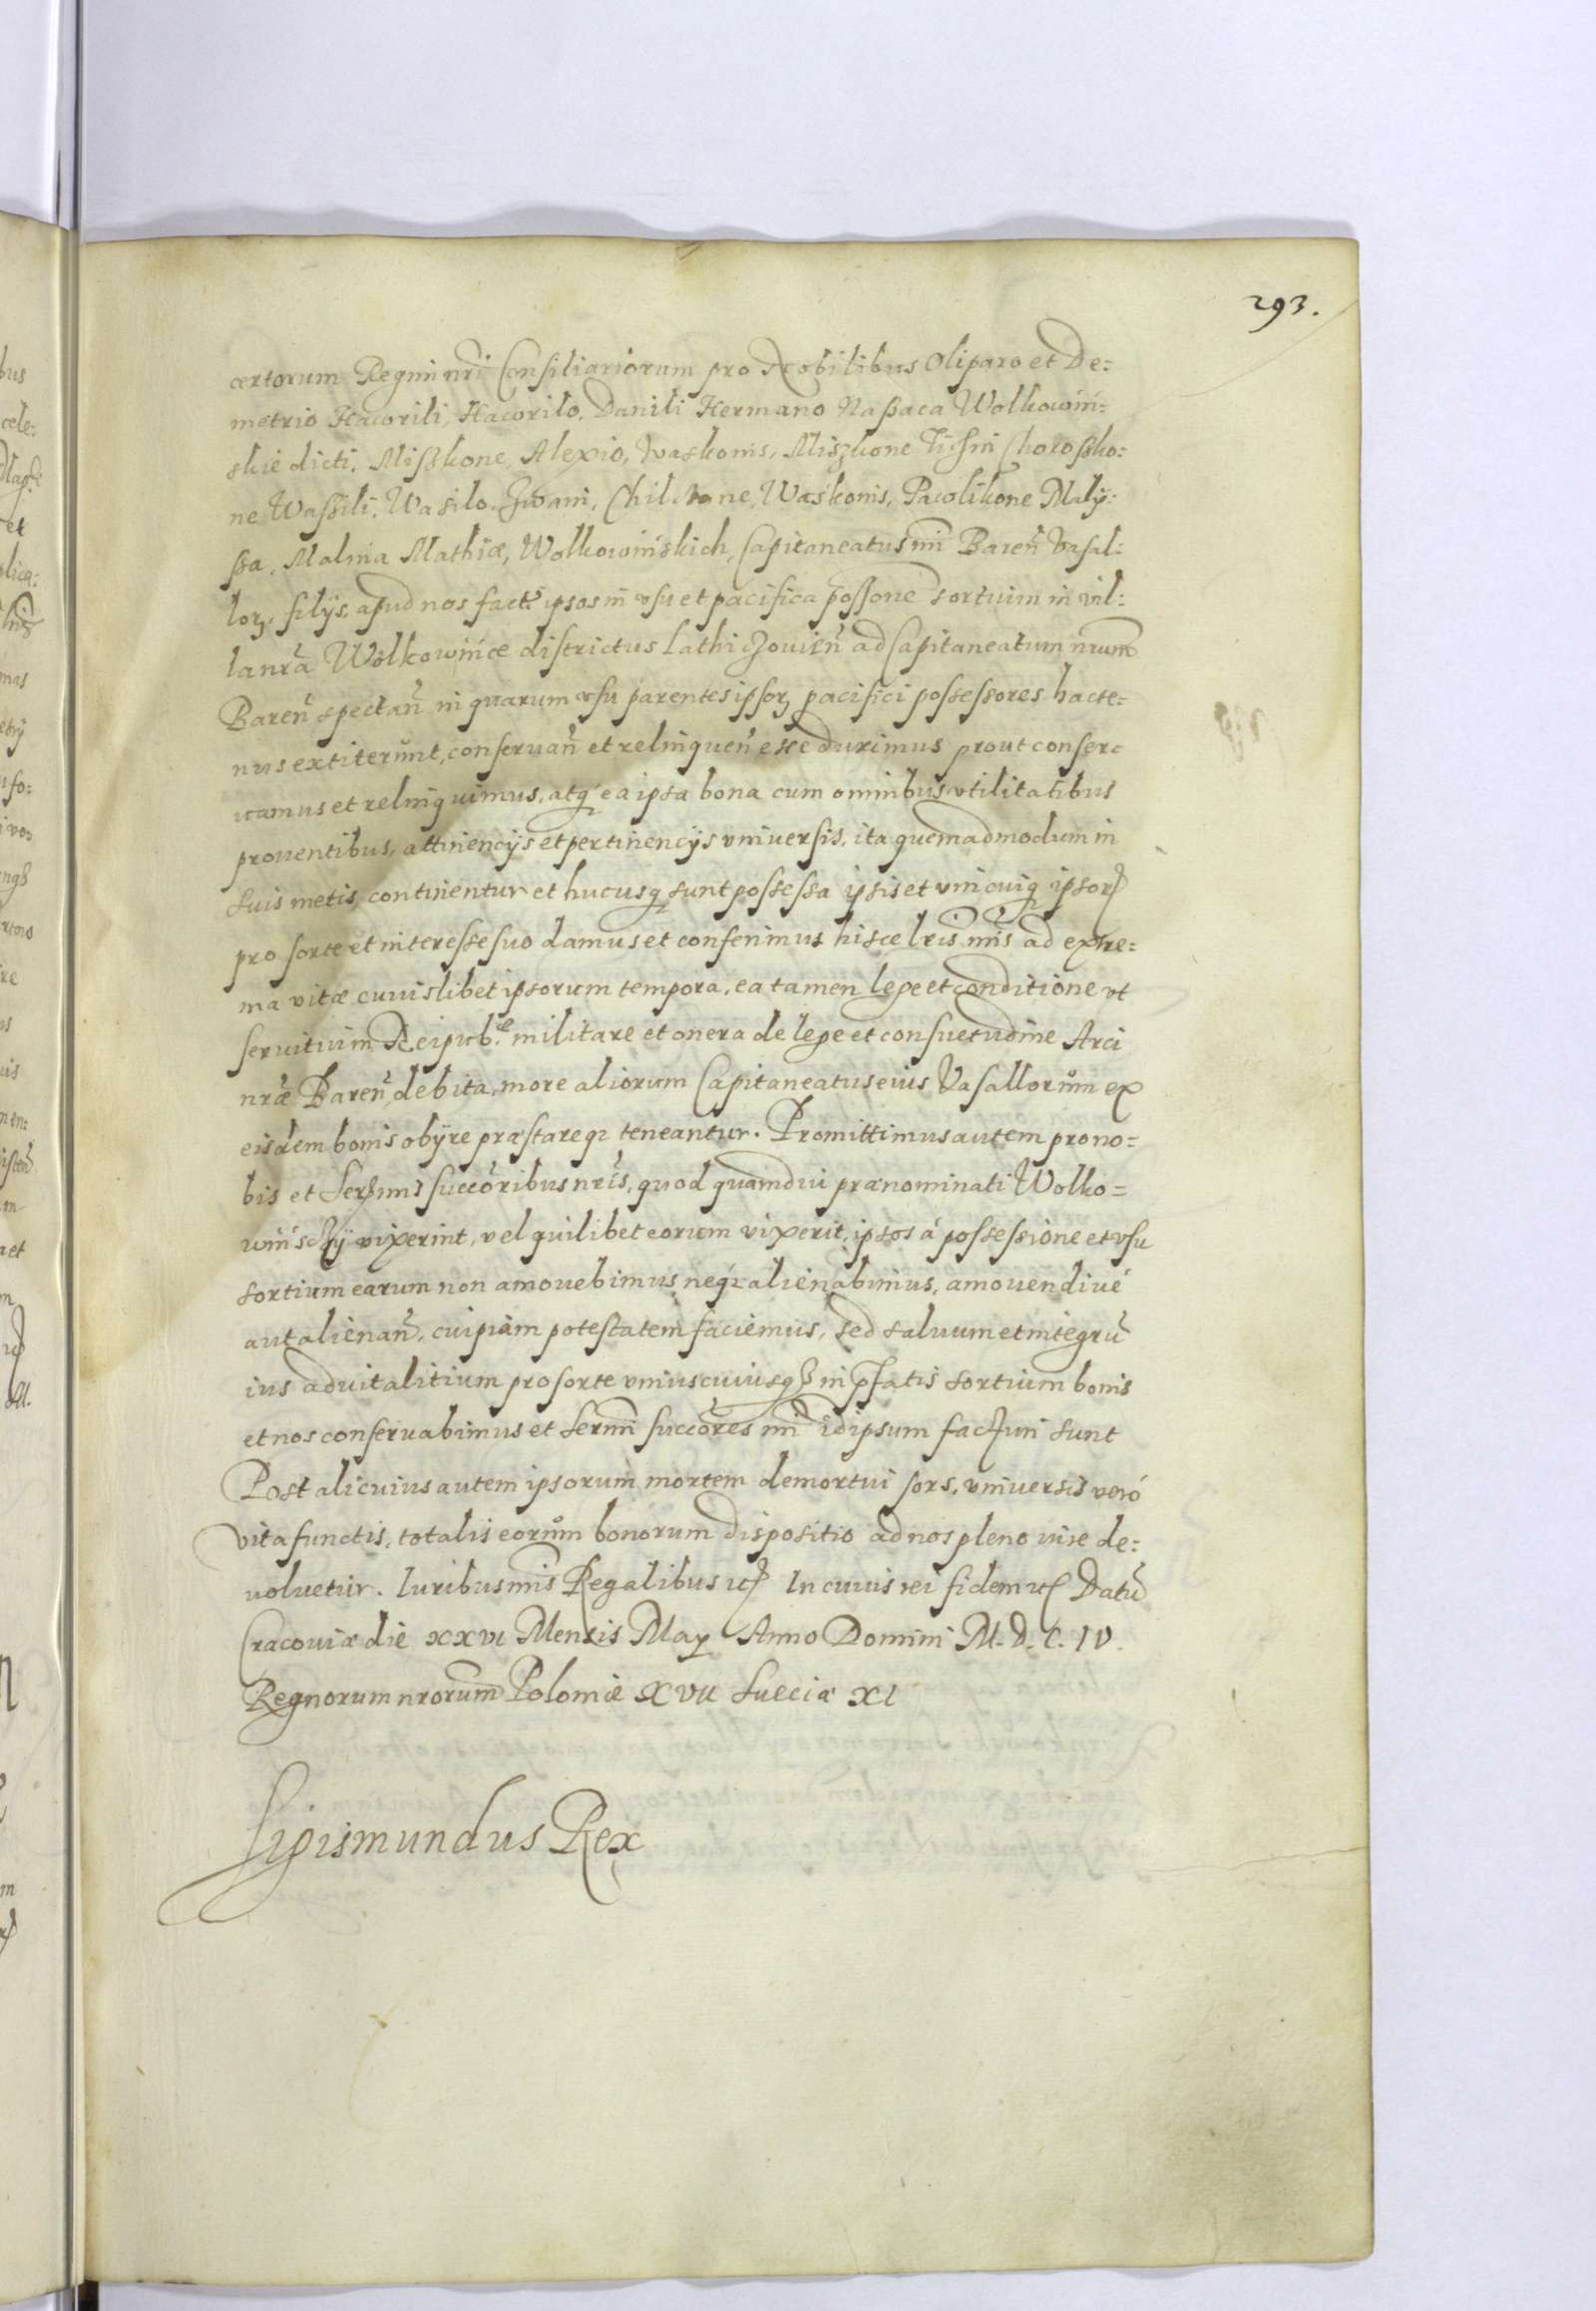 293.
certorum Regni nri Consiliariorum pro Nobilibus Oliparo et De:
metrio Hacorili, Hacorilo, Danili Hermano Naßaca Wolkowin:
skie dicti, Mißkone, Alexio, Ivaskonis, Miszkone Choroßko:
ne Waßili, Wasilo, Iwani, Waskonis, Pawlikone Maly:
ssa, Malma Mathiæ, Wolkowinskich, Capitaneatus nri Baren Vasal:
lorz, filys, apud nos fact: ipsos in usu et pacifica possone sortium in vil:
la nra Wolkowince districtus Lathiczouien ad Capitaneatum nrum
Baren spectan in quarum usu parentes ipsorz pacifici possessores hacte:
nus extiterunt, conservan et relinquen esse duximus prout conser:
vamus et relinquimus, atq ea ipsa bona cum omnibus utilitatibus
prouentibus, attinencijs et pertinencijs universis, ita quemadmodum in
suis metis continentur et hucusq sunt possessa ipsis et unicuiq ipsorz
pro sorte et interesse suo damus et conferimus hisce lris nris ad extre:
ma vitæ cuiuslibet ipsorum tempora, ea tamen lege et conditione ut
servitium Reipub.cæ militare et onera de lege et consuetudine Arci
nræ Baren debita, more aliorum Capitaneatus eius Vasallorum ex
eisdem bonis obyre præstareq teneantur. Promittimus autem pro no=
bis et Sermis succoribus nris, quod quamdiu prænominati Wolko=
winscÿ vixerint, vel quilibet eorum vixerit, ipsos á possessione et usu
sortium earum non amouebimus neq alienabimus, amouendive
aut alienan, cuipiam potestatem faciemus, sed saluum et integru
ius aduitalitium pro sorte uniuscuiusq in pfatis sortium bonis
et nos conseruabimus et Sermi succores nri idipsum facturi sunt
Post alicuius autem ipsorum mortem demortui sors, universis veró
vita functis, totalis eorum bonorum dispositio ad nos pleno iure de:
uoluetur. Iuribus nris Regalibus etc In cuius rei fidem etc Datu
Cracouiæ die XXVI Mensis May Anno Domini M. D. C. IV.
Regnorum nrorum Poloniæ XVII Sueciæ XI
Sigismundus Rex